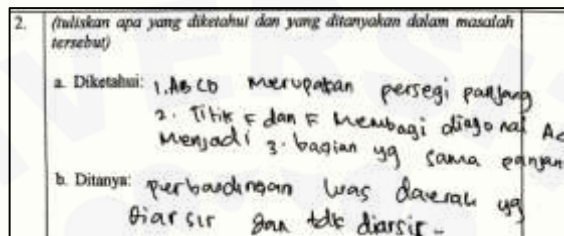 2. (tuliskan apa yang diketahui dan yang ditanyakan dalam masalah
tersebut)
a. Diketahui: 1. ABCD merupakan persegi panjang
2. Titik F dan F membagi diagonal AC
menjadi 3 bagian yg sama panjan
b. Ditanya: perbandingan luas daerah yg
diarsir dan tdk diarsir-